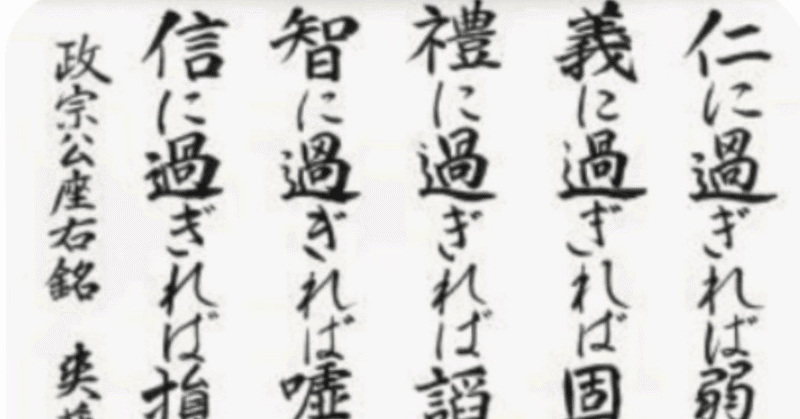 仁に過ぎれば弱
義に過ぎれば固
禮に過ぎれば諂
智に過ぎれば嘘
信に過ぎれば損
政宗公座右銘